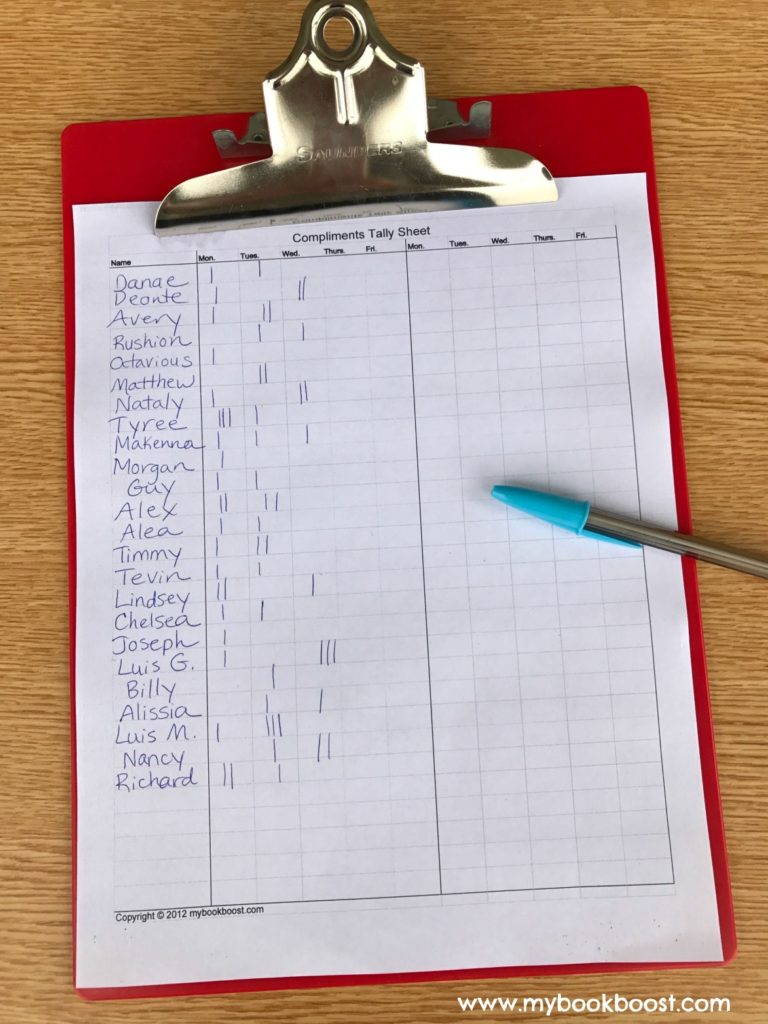 SAUNDERS
Compliments Tally Sheet
Name Mon. Tues. Wed. Thurs. Fri. Mon. Tues. Wed. Thurs. Fri.
Danae | |
Deonte | ||
Avery | ||
Rushion | |
Octavious |
Matthew ||
Nataly | ||
Tyree ||| |
Makenna | | |
Morgan |
Guy | |
Alex || ||
Alea | |
Timmy | ||
Tevin | |
Lindsey || |
Chelsea | |
Joseph |
Luis G. | |||
Billy |
Alissia | |
Luis M. | |||
Nancy | ||
Richard || |
Copyright © 2012 mybookboost.com
www.mybookboost.com